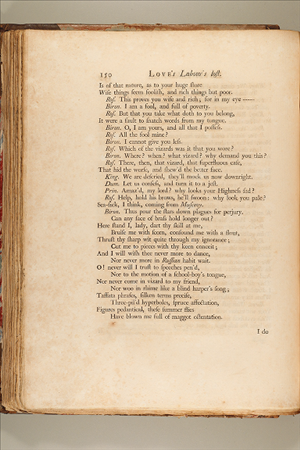 150 LOVE's Labour's lost.
Is of that nature, as to your huge store
Wise things seem foolish, and rich things but poor.
Ros. This proves you wise and rich; for in my eye ——
Biron. I am a fool, and full of poverty.
Ros. But that you take what doth to you belong,
It were a fault to snatch words from my tongue.
Biron. O, I am yours, and all that I possess.
Ros. All the fool mine?
Biron. I cannot give you less.
Ros. Which of the vizards was it that you wore?
Biron. Where? when? what vizard? why demand you this?
Ros. There, then, that vizard, that superfluous case,
That hid the worse, and shew'd the better face.
King. We are descried, they'll mock us now downright.
Dum. Let us confess, and turn it to a jest.
Prin. Amaz'd, my lord? why looks your Highness sad?
Ros. Help, hold his brows, he'll swoon: why look you pale?
Sea-sick, I think, coming from Muscovy.
Biron. Thus pour the stars down plagues for perjury.
Can any face of brass hold longer out?
Here stand I, lady, dart thy skill at me,
Bruise me with scorn, confound me with a flout,
Thrust thy sharp wit quite through my ignorance;
Cut me to pieces with thy keen conceit;
And I will wish thee never more to dance,
Nor never more in Russian habit wait.
O! never will I trust to speeches pen'd,
Nor to the motion of a school-boy's tongue,
Nor never come in vizard to my friend,
Nor woo in rhime like a blind harper's song;
Taffata phrases, silken terms precise,
Three-pil'd hyperboles, spruce affectation,
Figures pedantical, these summer flies
Have blown me full of maggot ostentation.
I do